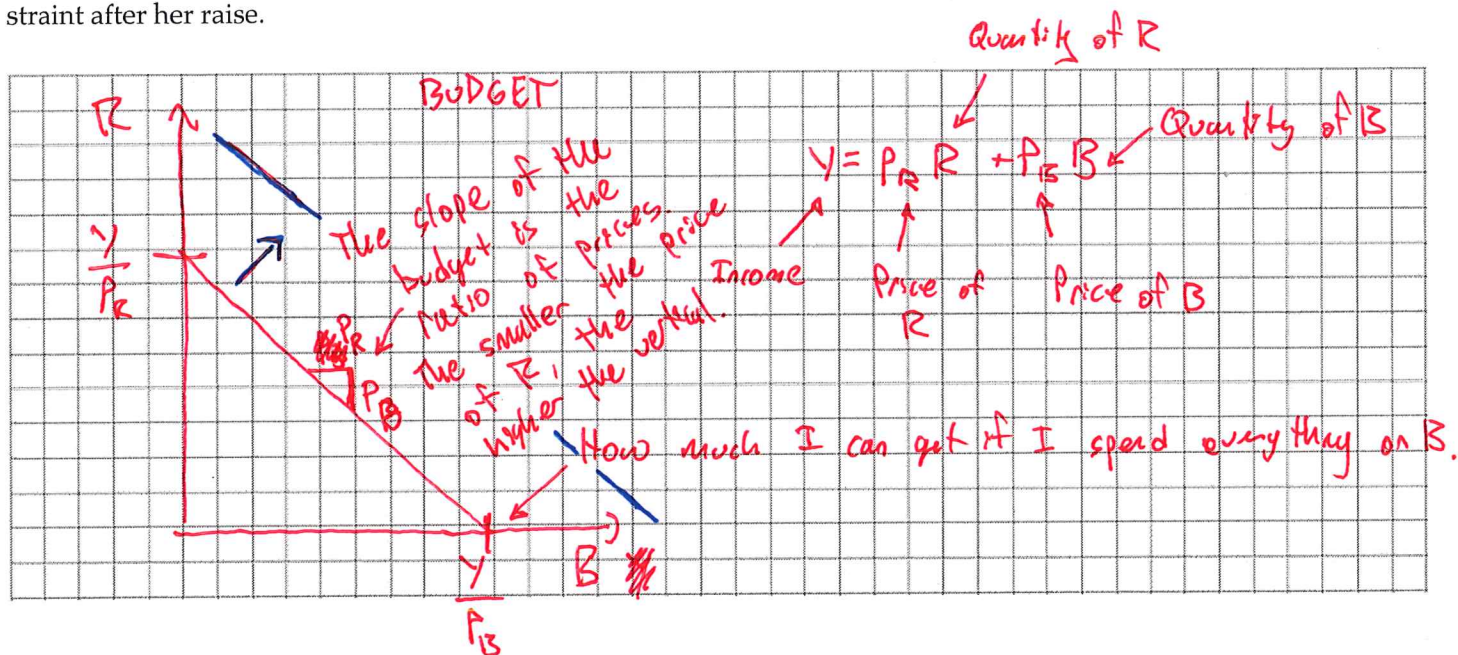 straint after her raise.
Quantity of R
BUDGET
R
Y = P_R R + P_B B
Quantity of B
Income
Price of
R
Price of B
The slope of the
budget is the
ratio of prices.
The smaller the price
of R, the
higher the vertical.
Y
P_R
P_R
P_B
How much I can get if I spend everything on B.
Y
P_B
B